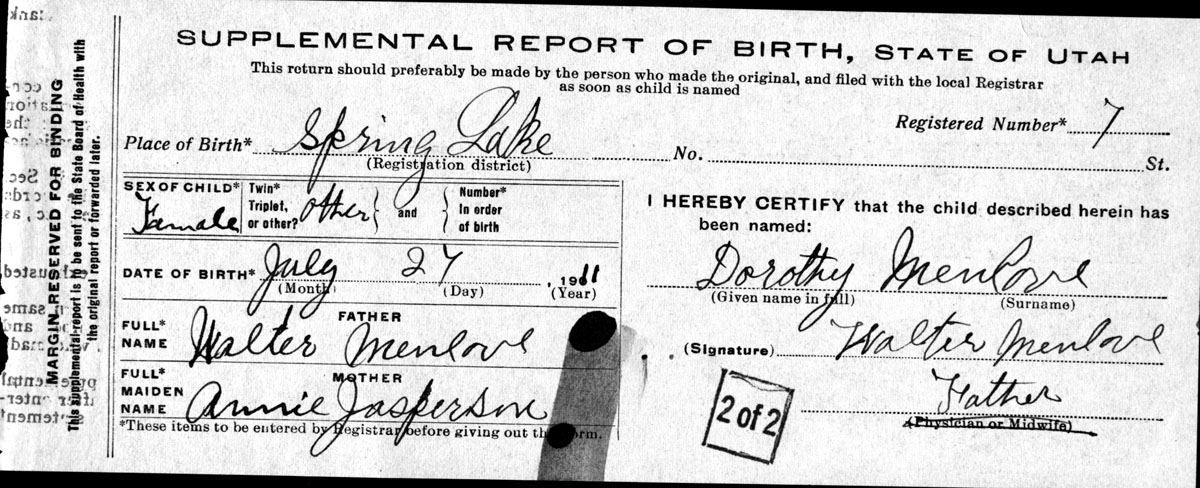 SUPPLEMENTAL REPORT OF BIRTH, STATE OF UTAH
This return should preferably be made by the person who made the original, and filed with the local Registrar
as soon as child is named
Registered Number* 7
Place of Birth* Spring Lake No. St.
(Registration district)
SEX OF CHILD* Famale
Twin* Triplet, or other? Other } and { Number* In order of birth
DATE OF BIRTH* July 27, 1911
(Month) (Day) (Year)
FATHER
FULL* NAME Walter Menlove
MOTHER
FULL* MAIDEN NAME Annie Jasperson
*These items to be entered by Registrar before giving out the form.
I HEREBY CERTIFY that the child described herein has
been named:
Dorothy Menlove
(Given name in full) (Surname)
(Signature) Walter Menlove
Father
(Physician or Midwife)
2 of 2
MARGIN RESERVED FOR BINDING
This supplemental report is to be sent to the State Board of Health with
the original report or forwarded later.